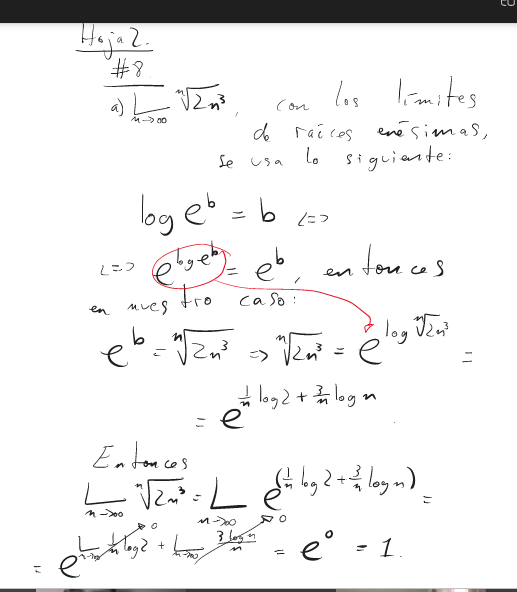 Hoja 2.
#8
a) L n→∞ ⁿ√2n³, con los límites
de raíces enésimas,
se usa lo siguiente:
log e^b = b <=>
<=> e^(log e^b) = e^b, entonces
en nuestro caso:
e^b = ⁿ√2n³ => ⁿ√2n³ = e^(log ⁿ√2n³) =
= e^(1/n log 2 + 3/n log n)
Entonces
L n→∞ ⁿ√2n³ = L n→∞ e^(1/n log 2 + 3/n log n) =
= e^(L n→∞ 1/n log 2 → 0 + L n→∞ 3 log n/n → 0) = e⁰ = 1.